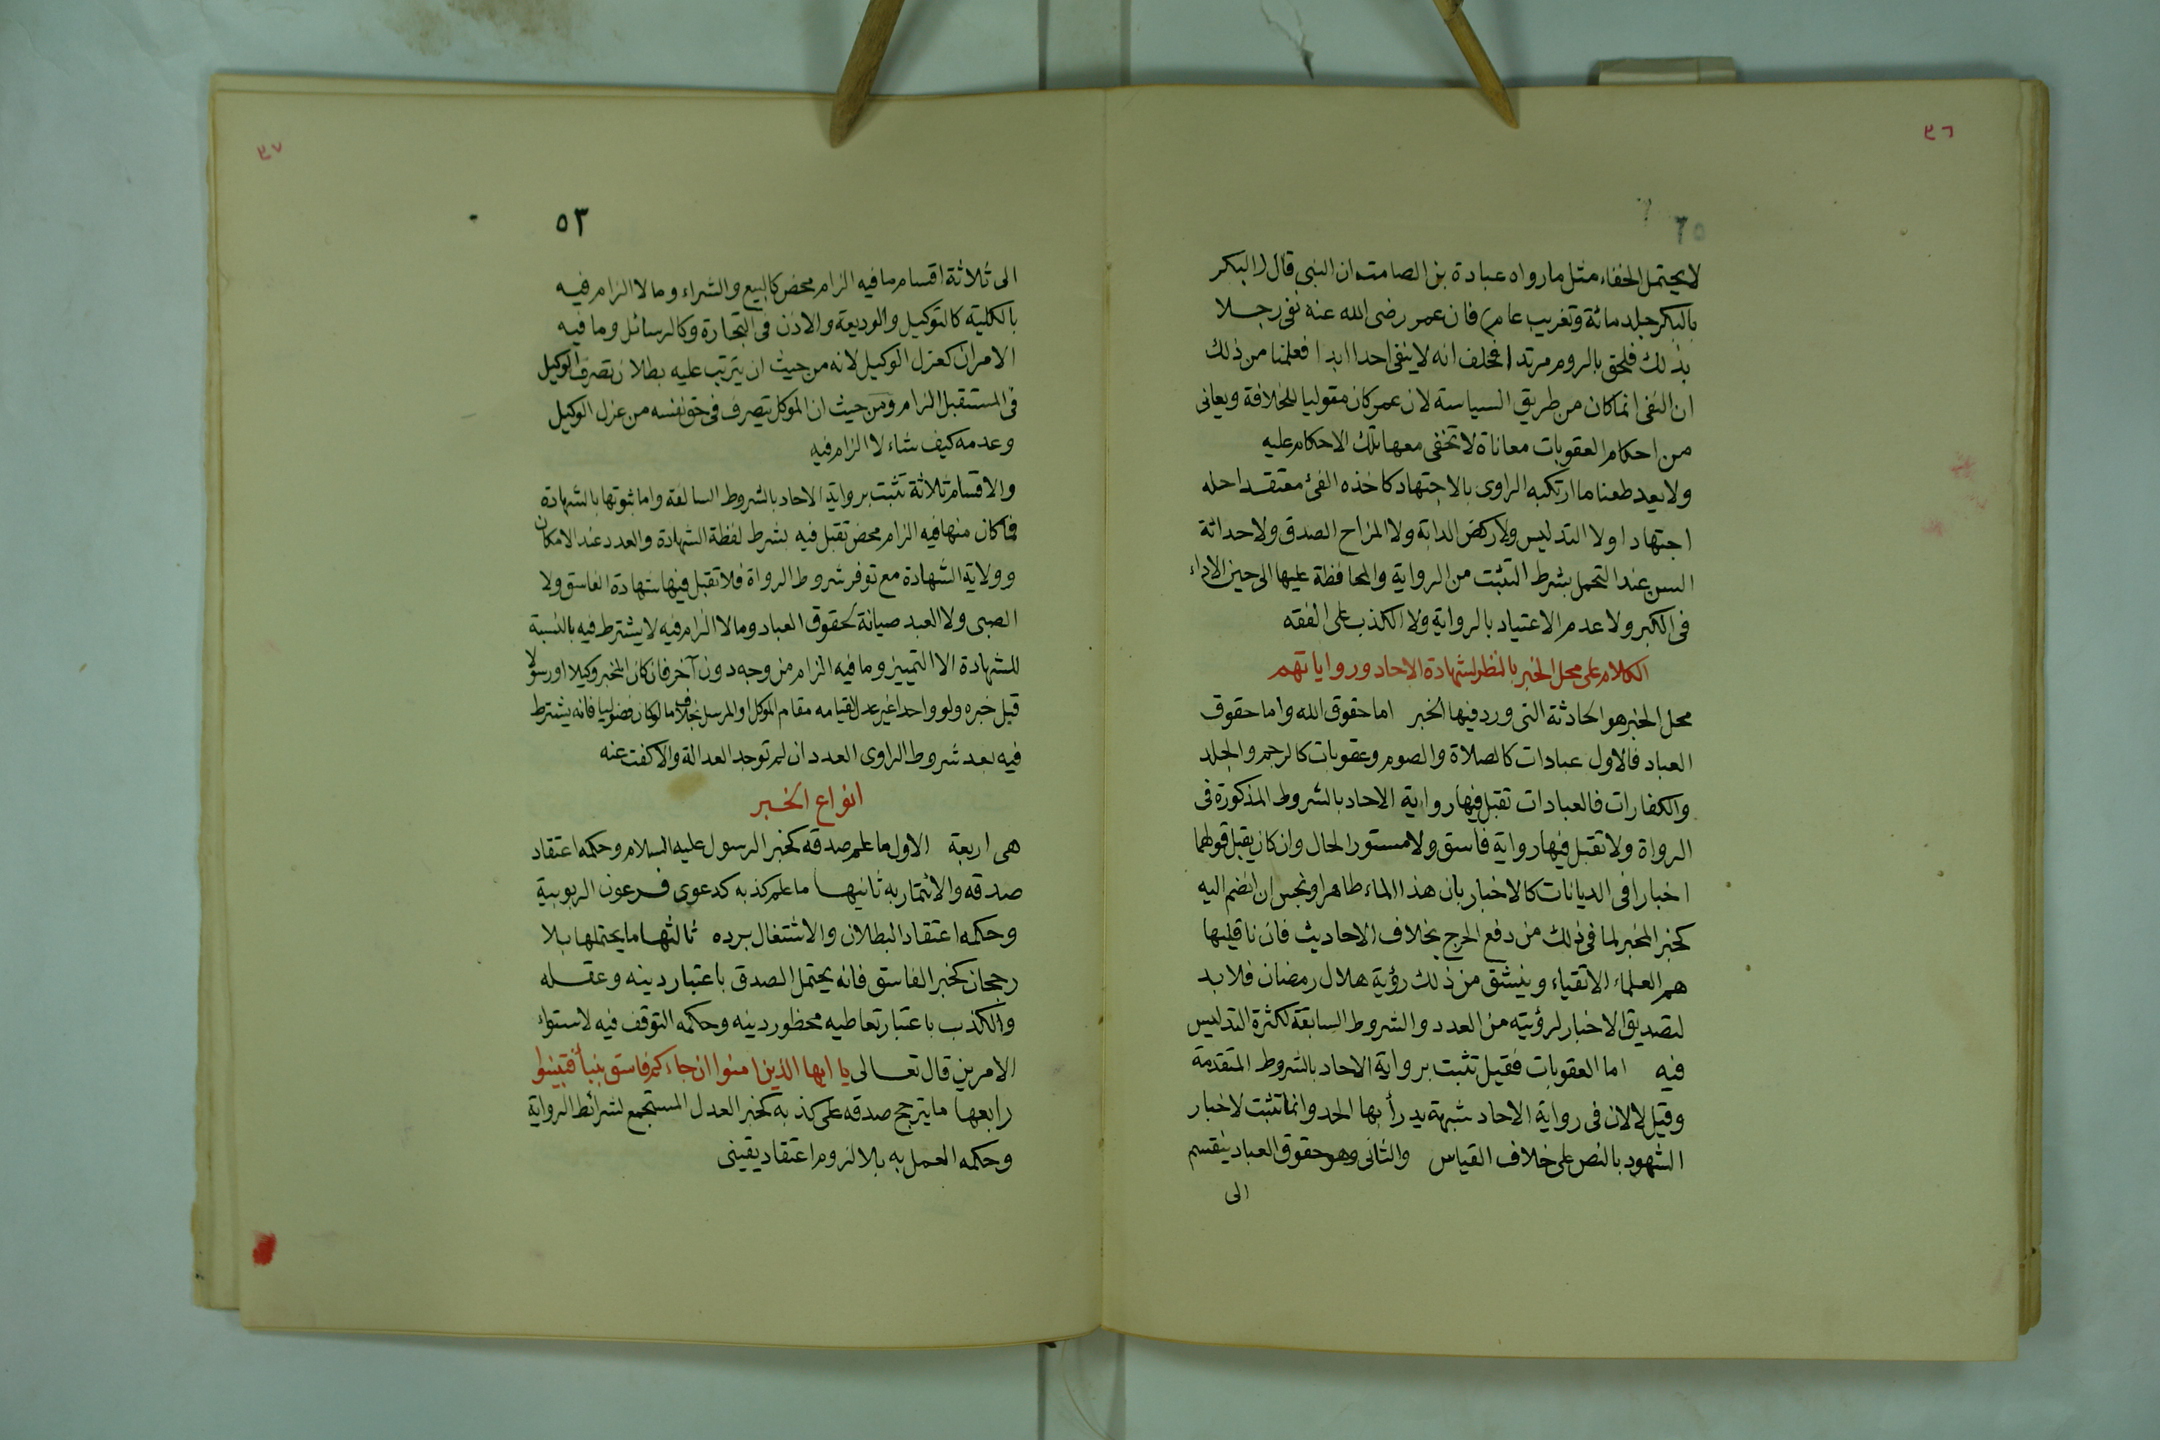 ٣٦
٥٢
لا يحتمل الخفاء مثل ما رواه عبادة بن الصامت ان النبي قال (البكر
بالبكر جلد مائة وتغريب عام) فان عمر رضى الله عنه نفى رجلا
بذلك فلحق بالروم مرتدا فحلف انه لا ينفى احدا ابدا فعلمنا من ذلك
ان النفى انما كان من طريق السياسة لان عمر كان متوليا للخلافة ويعانى
من احكام العقوبات معاناة لا تخفى معها تلك الاحكام عليه
ولا يعد طعنا ما ارتكبه الراوى بالاجتهاد كاخذه الفئ معتقدا حله
اجتهادا ولا التدليس ولا ركض الدابة ولا المزاح الصدق ولا حداثة
السن عند التحمل بشرط التثبت من الرواية والمحافظة عليها الى حين الاداء
فى الكبر ولا عدم الاعتياد بالرواية ولا الكذب على الفقه
الكلام على محل الخبر بالنظر لشهادة الاحاد ورواياتهم
محل الخبر هو الحادثة التى ورد فيها الخبر اما حقوق الله واما حقوق
العباد فالاول عبادات كالصلاة والصوم وعقوبات كالرجم والجلد
والكفارات فالعبادات تقبل فيها رواية الاحاد بالشروط المذكورة فى
الرواة ولا تقبل فيها رواية فاسق ولا مستور الحال وان كان يقبل قولهما
اخبارا فى الديانات كالاخبار بان هذا الماء طاهر او نجس ان انضم اليه
كخبر المخبر لما فى ذلك من دفع الحرج بخلاف الاحاديث فان ناقليها
هم العلماء الاتقياء وينشق من ذلك رؤية هلال رمضان فلا بد
لتصديق الاخبار لرؤيته من العدد والشروط السابقة لكثرة التدليس
فيه اما العقوبات فقيل تثبت برواية الاحاد بالشروط المتقدمة
وقيل لا لان فى رواية الاحاد شبهة يدرأ بها الحد وانما تثبت لاخبار
الشهود بالنص على خلاف القياس والثانى وهو حقوق العباد ينقسم
الى
٣٧
٥٣
الى ثلاثة اقسام ما فيه الزام محض كالبيع والشراء وما لا الزام فيه
بالكلية كالتوكيل والوديعة والاذن فى التجارة وكالرسائل وما فيه
الامران كعزل الوكيل لانه من حيث ان يترتب عليه بطلان تصرف الوكيل
فى المستقبل الزام ومن حيث ان الموكل يتصرف فى حق نفسه من عزل الوكيل
وعدمه كيف شاء لا الزام فيه
والاقسام ثلاثة تثبت برواية الاحاد بالشروط السالفة واما ثبوتها بالشهادة
فما كان منها فيه الزام محض تقبل فيه بشرط لفظة الشهادة والعدد عند الامكان
وولاية الشهادة مع توفر شروط الرواة فلا تقبل فيها شهادة الفاسق ولا
الصبى ولا العبد صيانة لحقوق العباد وما لا الزام فيه لا يشترط فيه بالنسبة
للشهادة الا التمييز وما فيه الزام من وجه دون آخر فان كان المخبر وكيلا او رسولا
قبل خبره ولو واحدا غير عدل لقيامه مقام الموكل او المرسل بخلاف ما لو كان فضوليا فانه يشترط
فيه بعد شروط الراوى العدد ان لم توجد العدالة والا كفت عنه
انواع الخبر
هى اربعة الاول ما علم صدقه كخبر الرسول عليه السلام وحكمه اعتقاد
صدقه والائتمار به ثانيها ما علم كذبه كدعوى فرعون الربوبية
وحكمه اعتقاد البطلان والاشتغال برده ثالثها ما يحتملها بلا
رجحان كخبر الفاسق فانه يحتمل الصدق باعتبار دينه وعقله
والكذب باعتبار تعاطيه محظور دينه وحكمه التوقف فيه لاستواء
الامرين قال تعالى يا ايها الذين امنوا ان جاءكم فاسق بنبأ فتبينوا
رابعها ما يترجح صدقه على كذبه كخبر العدل المستجمع لشرائط الرواية
وحكمه العمل به بلا لزوم اعتقاد يقينى